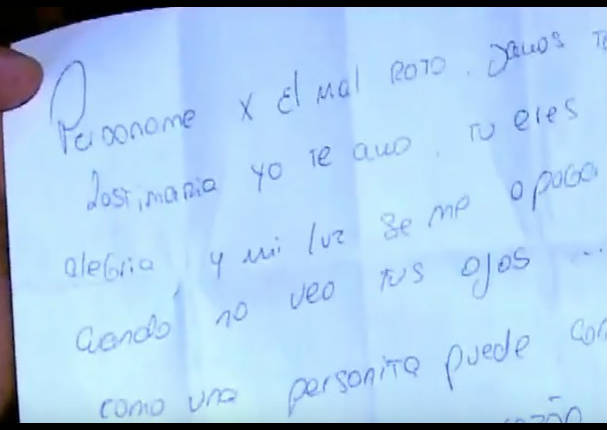 Perdoname x El mal Roto. Jamos Te
lastimaria yo Te amo. Tu eres
alegria, y mi luz se me apaga
cuando no veo tus ojos ...
como una personita puede con